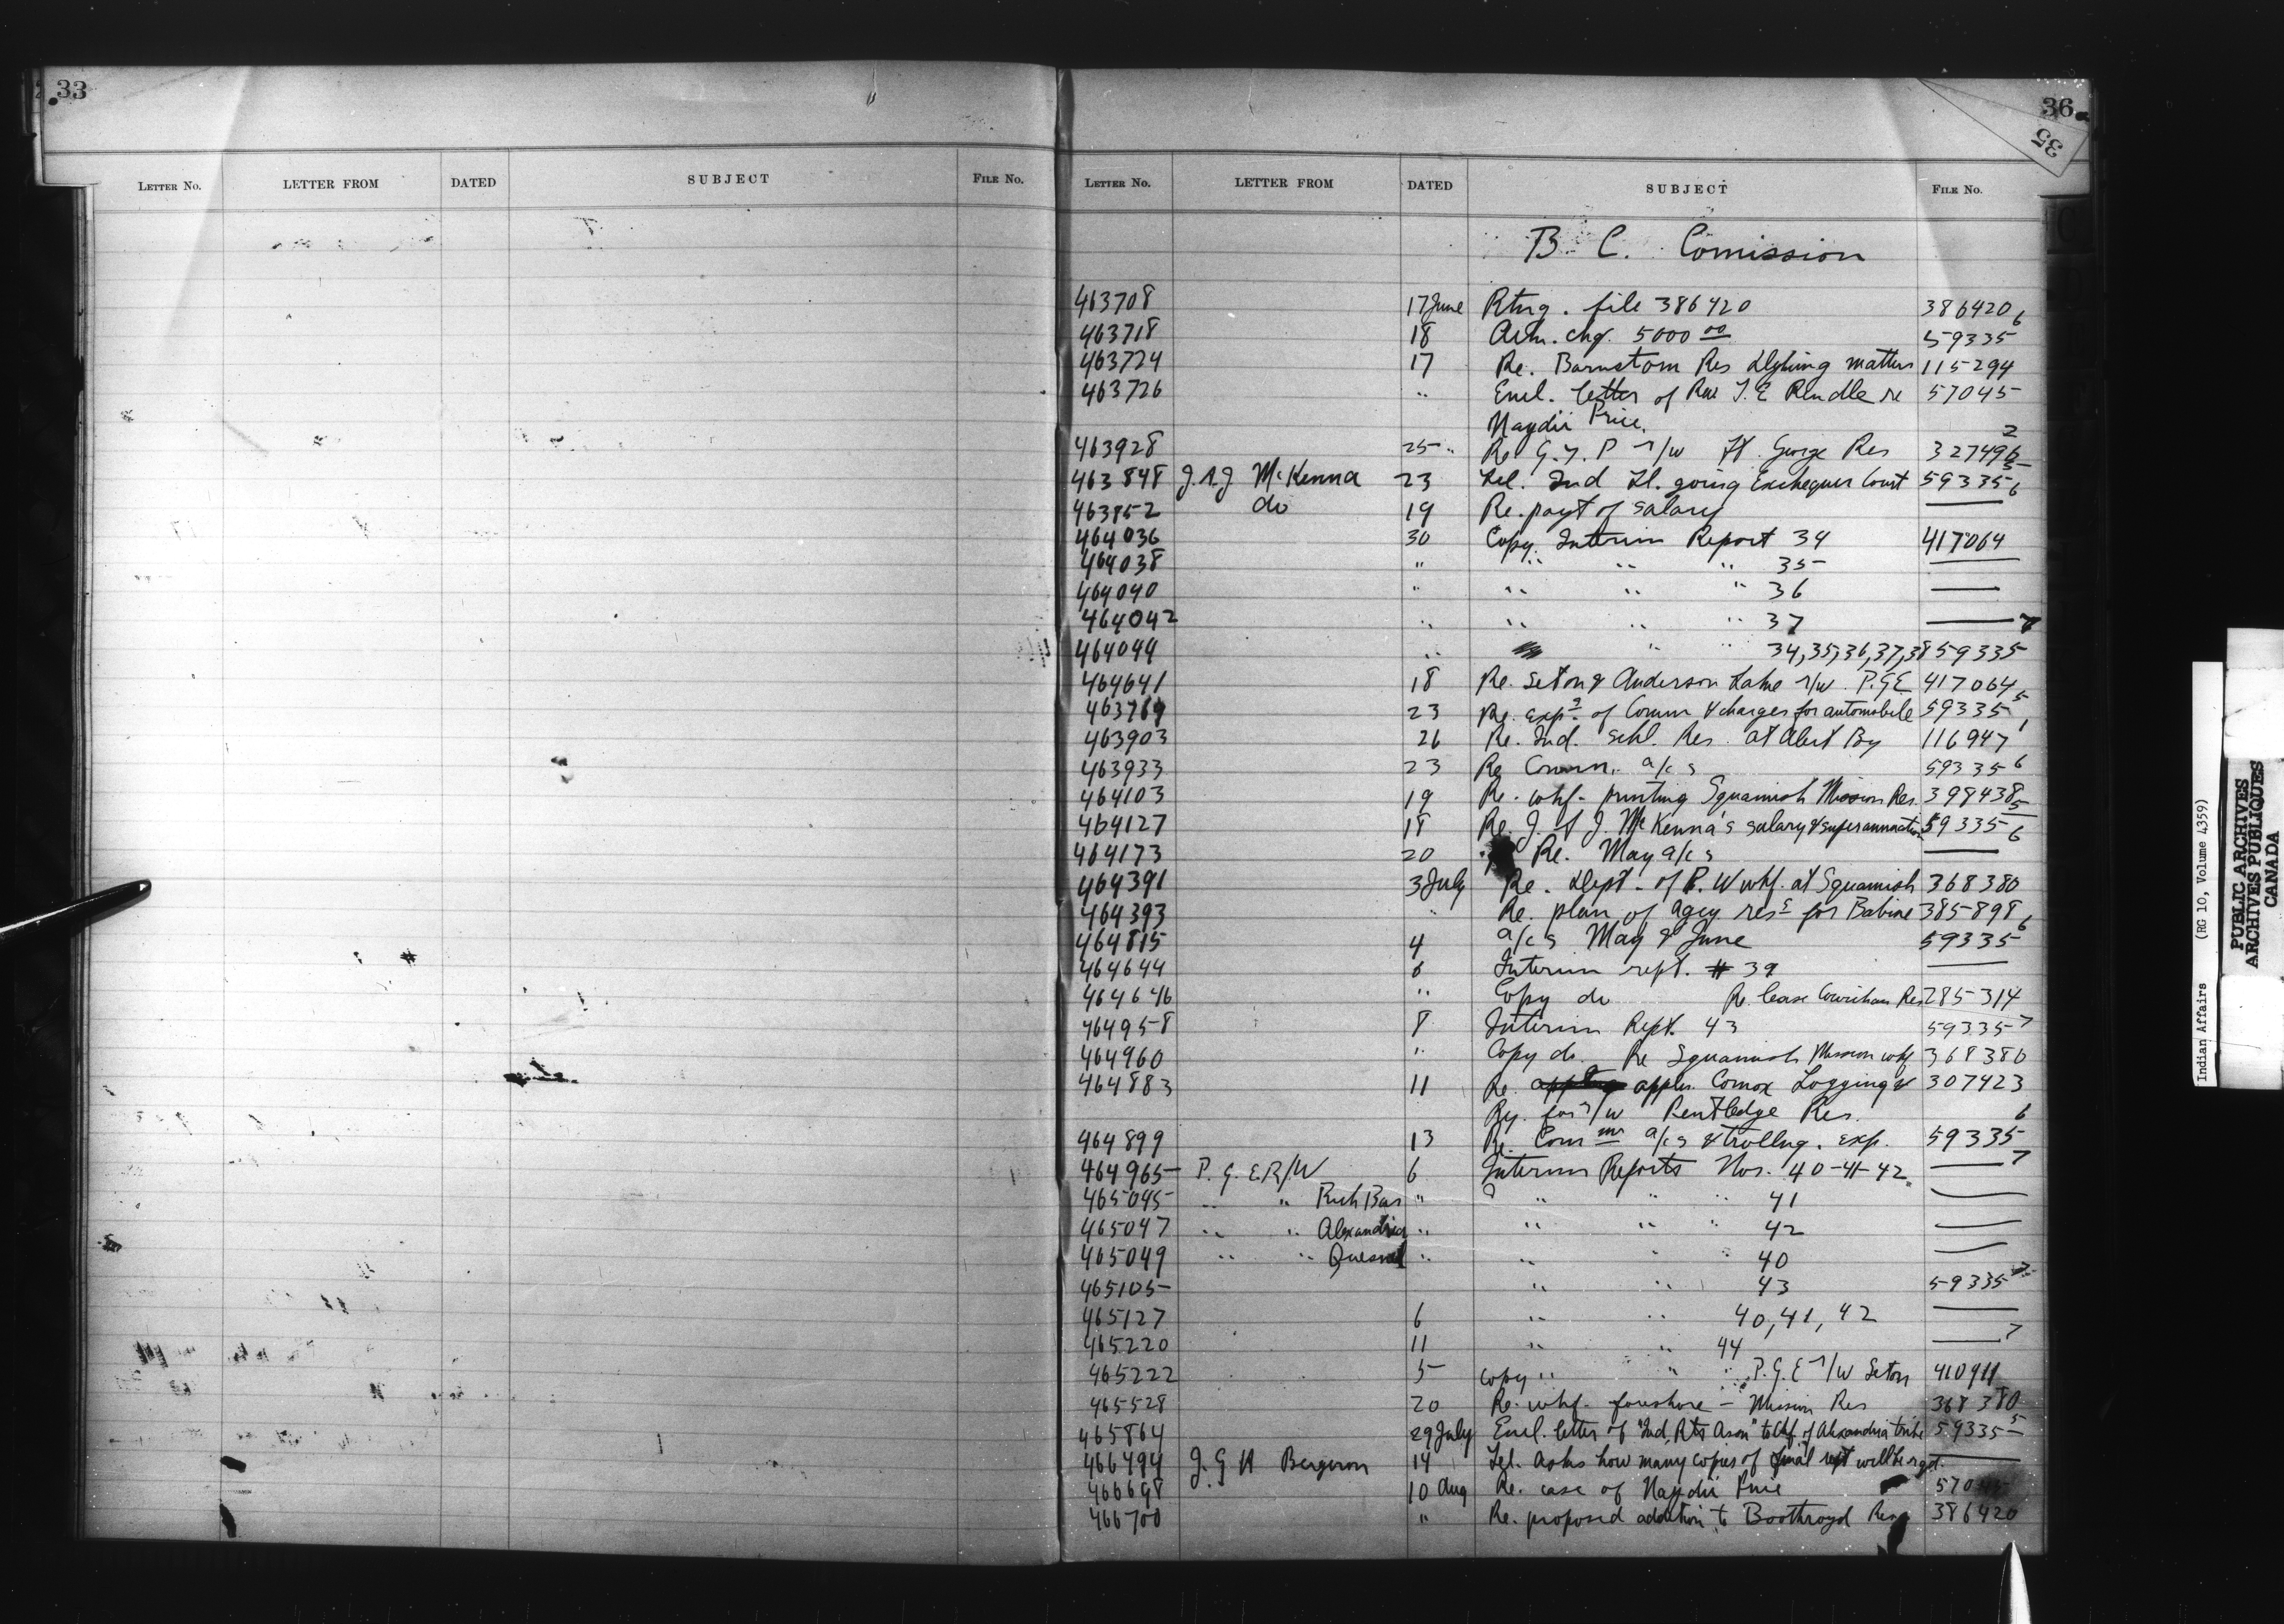 33
LETTER No. LETTER FROM DATED SUBJECT FILE No.
36
35
LETTER No. LETTER FROM DATED SUBJECT FILE No.
B. C. Comission
463708 17 June Rtng. file 386420 386420
463718 18 Ack. chq. 5000 00 59335 6
463724 17 Re. Barnston Res Dyking matters 115294
463726 " Encl. letter of Rev T. E Rendle re 57045
Naydii Price.
463928 25 " Re G.T.P r/w Ft. George Res 327496 2
463848 J.A.J McKenna 23 Tel. Ind Tl. going Exchequer Court 59335 5
463852 do 19 Re. payt of salary — 6
464036 30 Copy. Interim Report 34 417064
464038 " " " " 35 —
464040 " " " " 36 —
464042 " " " " 37 —
464044 " " " 34, 35, 36, 37, 38 59335 7
464641 18 Re. Seton & Anderson Lake r/w. P.G.E 417064
463769 23 Re. exps of Comm & charges for automobile 59335 5
463903 26 Re. Ind. Schl. Res. at Alert By 116947 1
463933 23 Re Comm. a/cs 59335 6
464103 19 Re. whf. Squamish Mission Res. 398438
464127 18 Re. J. A J. McKenna's salary & superannuation 59335 5
464173 20 Re. May a/cs — 6
464391 3 July Re. Dept. of P. W whf. at Squamish 368380
464393 " Re. plan of agcy ress for Babine 385898
464815 4 a/cs May & June 59335 6
464644 6 Interim rept. # 39 —
464646 " Copy do Re. lease Cowichan Res 285314
464958 8 Interim Rept. 43 59335 7
464960 " Copy do. Re Squamish Mission whf 368380
464883 11 Re. appln. Comox Logging & 307423
Ry. for r/w Pentledge Res.
464899 13 Re. Commrs a/cs & trvllng. exp. 59335 6
464965 P. G. E. R/W 6 Interim Reports Nos. 40-41-42. — 7
465045 " " Rich Bar " " " " 41 —
465047 " " Alexandria " " " " 42 —
465049 " " Quesnel " " " " 40 —
465105 " " 43 59335 7
465127 6 " " 40, 41, 42 —
465220 11 " " 44 — 7
465222 5 copy " " " P.G.E r/w Seton 410911
465528 20 Re. whf. foreshore - Mission Res 368380
465864 29 July Encl. letter of "Ind. Rts Assn" to Chf. of Alexandria tribe 59335 5
466494 J. G H Bergeron 14 Tel. Asks how many copies of final rept will be rqd. —
466698 10 Aug Re. case of Naydii Price 57045
466700 " Re. proposed addition to Boothroyd Res 386420
Indian Affairs (RG 10, Volume 4359)
PUBLIC ARCHIVES
ARCHIVES PUBLIQUES
CANADA